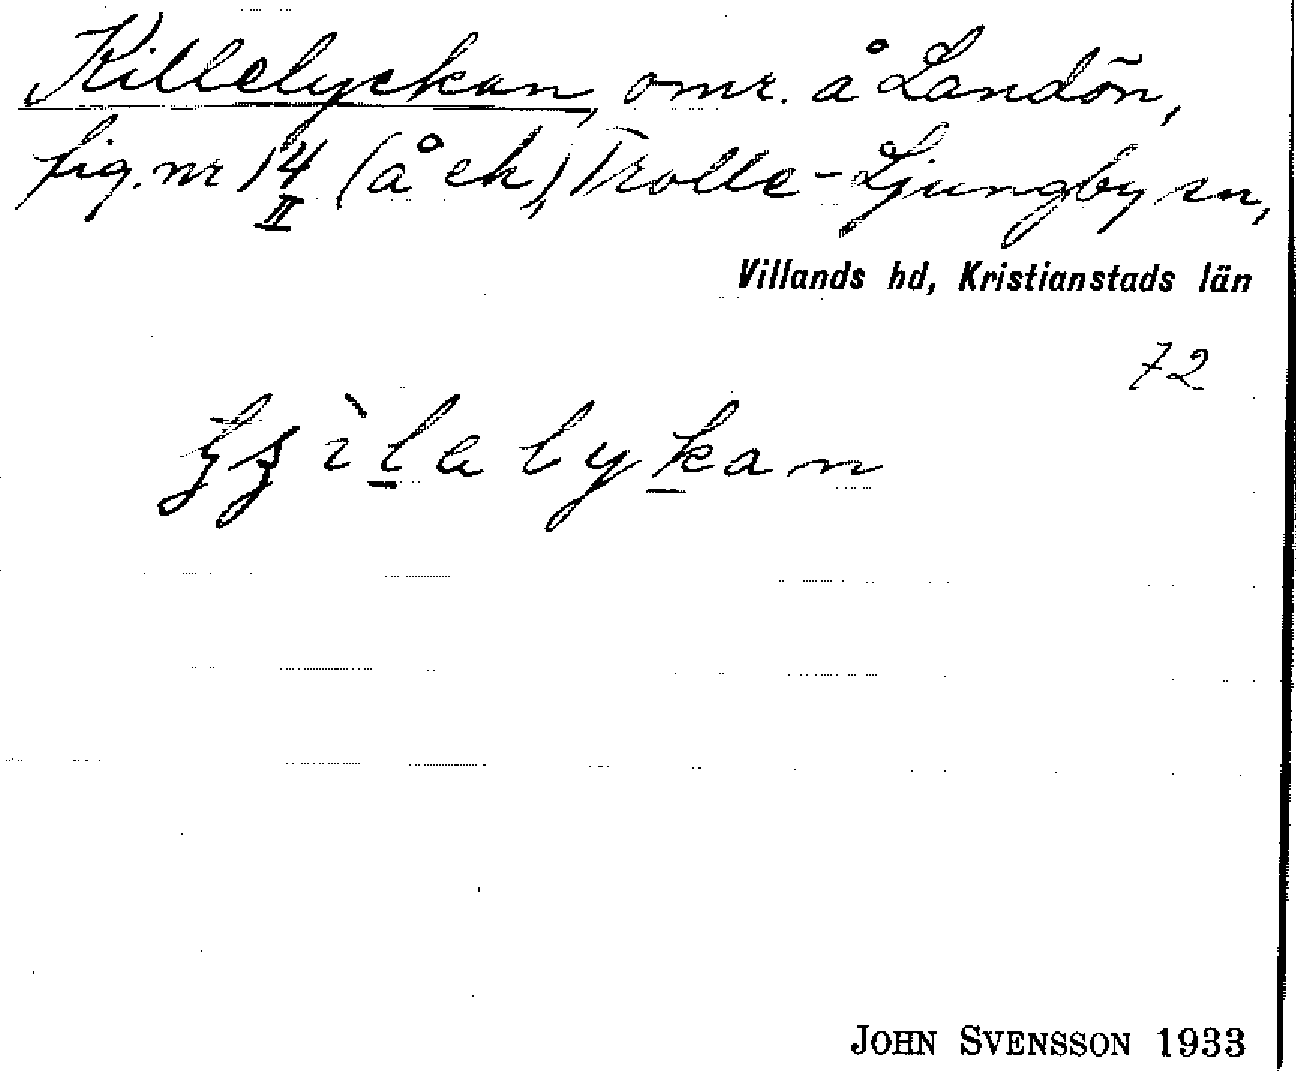 Killelyckan, omr. å Landön,
fig. nr 14 (å ek), Trolle-Ljungby sn,
II
Villands hd, Kristianstads län
72
JOHN SVENSSON 1933